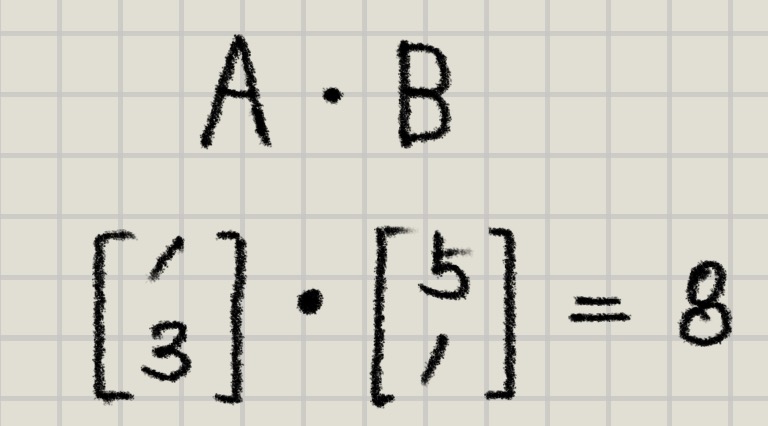 A · B
[1 3] · [5 1] = 8